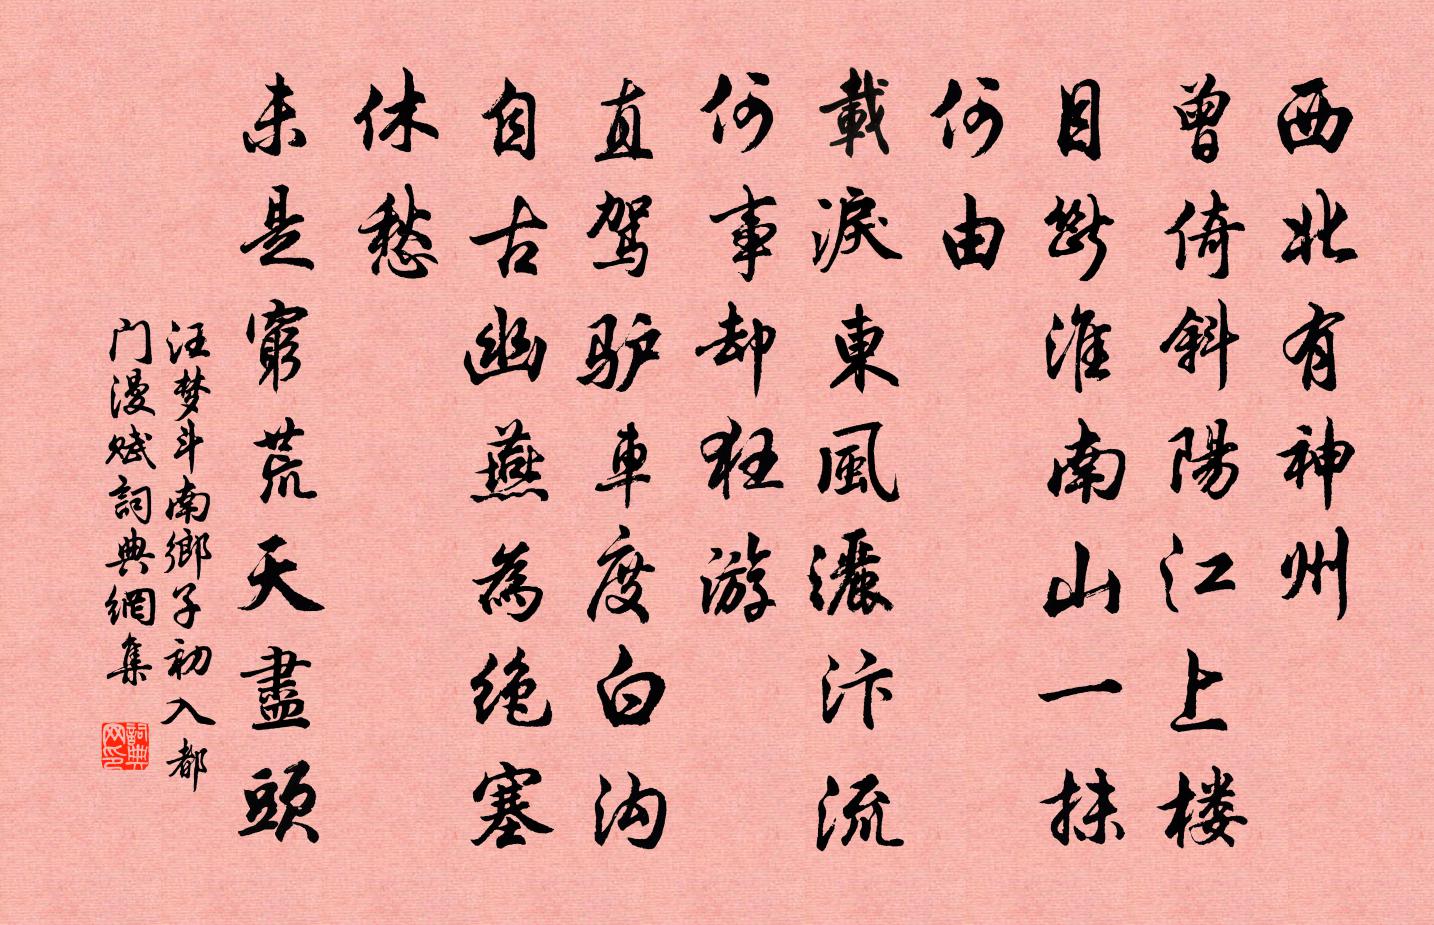 西北有神州
曾倚斜陽江上楼
目断淮南山一抹
何由
載淚東風灑汴流
何事却狂游
直驾驴車度白沟
自古幽燕為绝塞
休愁
未是窮荒天盡頭
汪梦斗南鄉子初入都
门漫赋詞典網集
詞典
网印